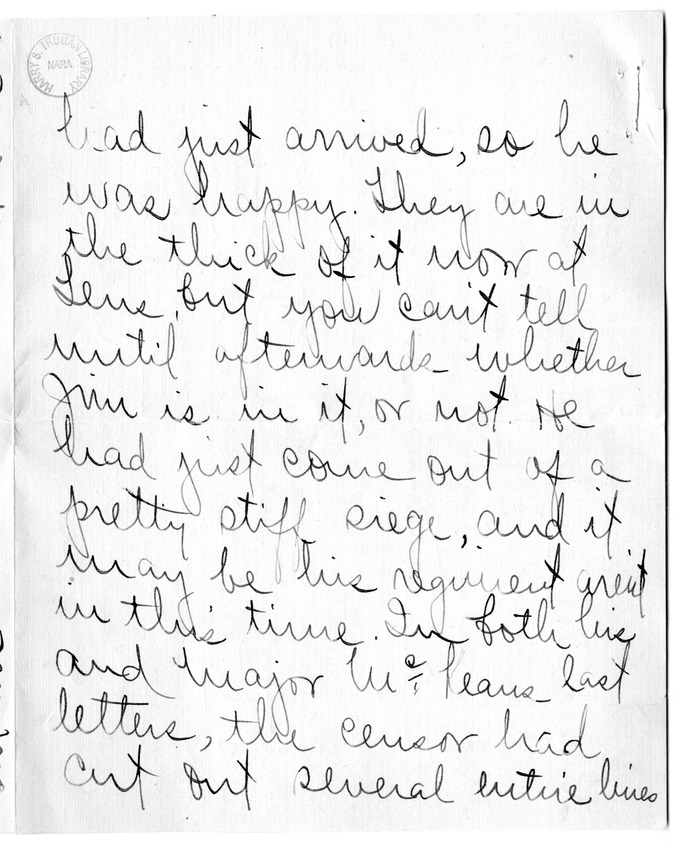 HARRY S. TRUMAN LIBRARY
NARA
had just arrived, so he
was happy. They are in
the thick of it now at
Lens, but you can't tell
until afterwards whether
Jim is in it, or not. He
had just come out of a
pretty stiff siege, and it
may be his regiment aren't
in this time. In both his
and Major Mc last
letters, the censor had
cut out several entire lines